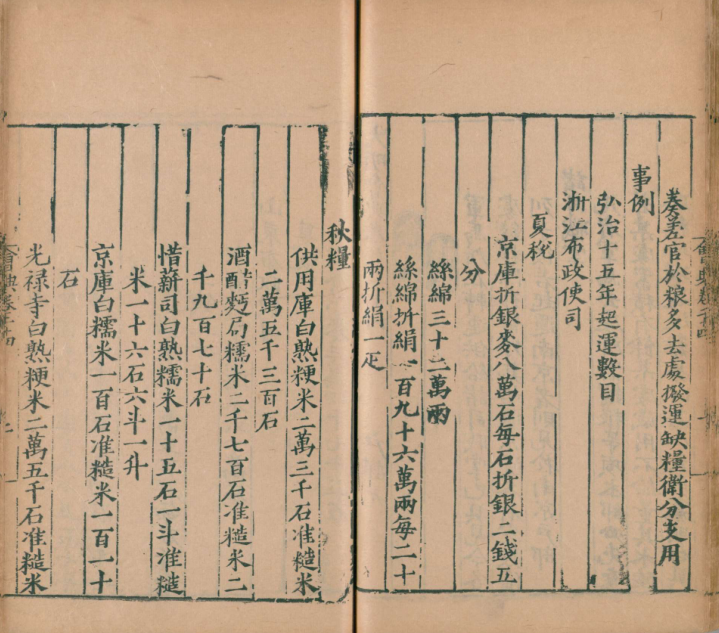 奏差官於粮多去處撥運缺糧衛分支用
事例
弘治十五年起運數目
浙江布政使司
夏稅
京庫折銀麥八萬石每石折銀二錢五
分
絲綿三十二萬兩
絲綿折絹一百九十六萬兩每二十
兩折絹一疋
秋糧
供用庫白熟粳米二萬三千石准糙米
二萬五千三百石
酒醋麪局糯米二千七百石准糙米二
千九百七十石
惜薪司白熟糯米一十五石一斗准糙
米一十六石六斗一升
京庫白糯米一百石准糙米一百一十
石
光禄寺白熟粳米二萬五千石准糙米